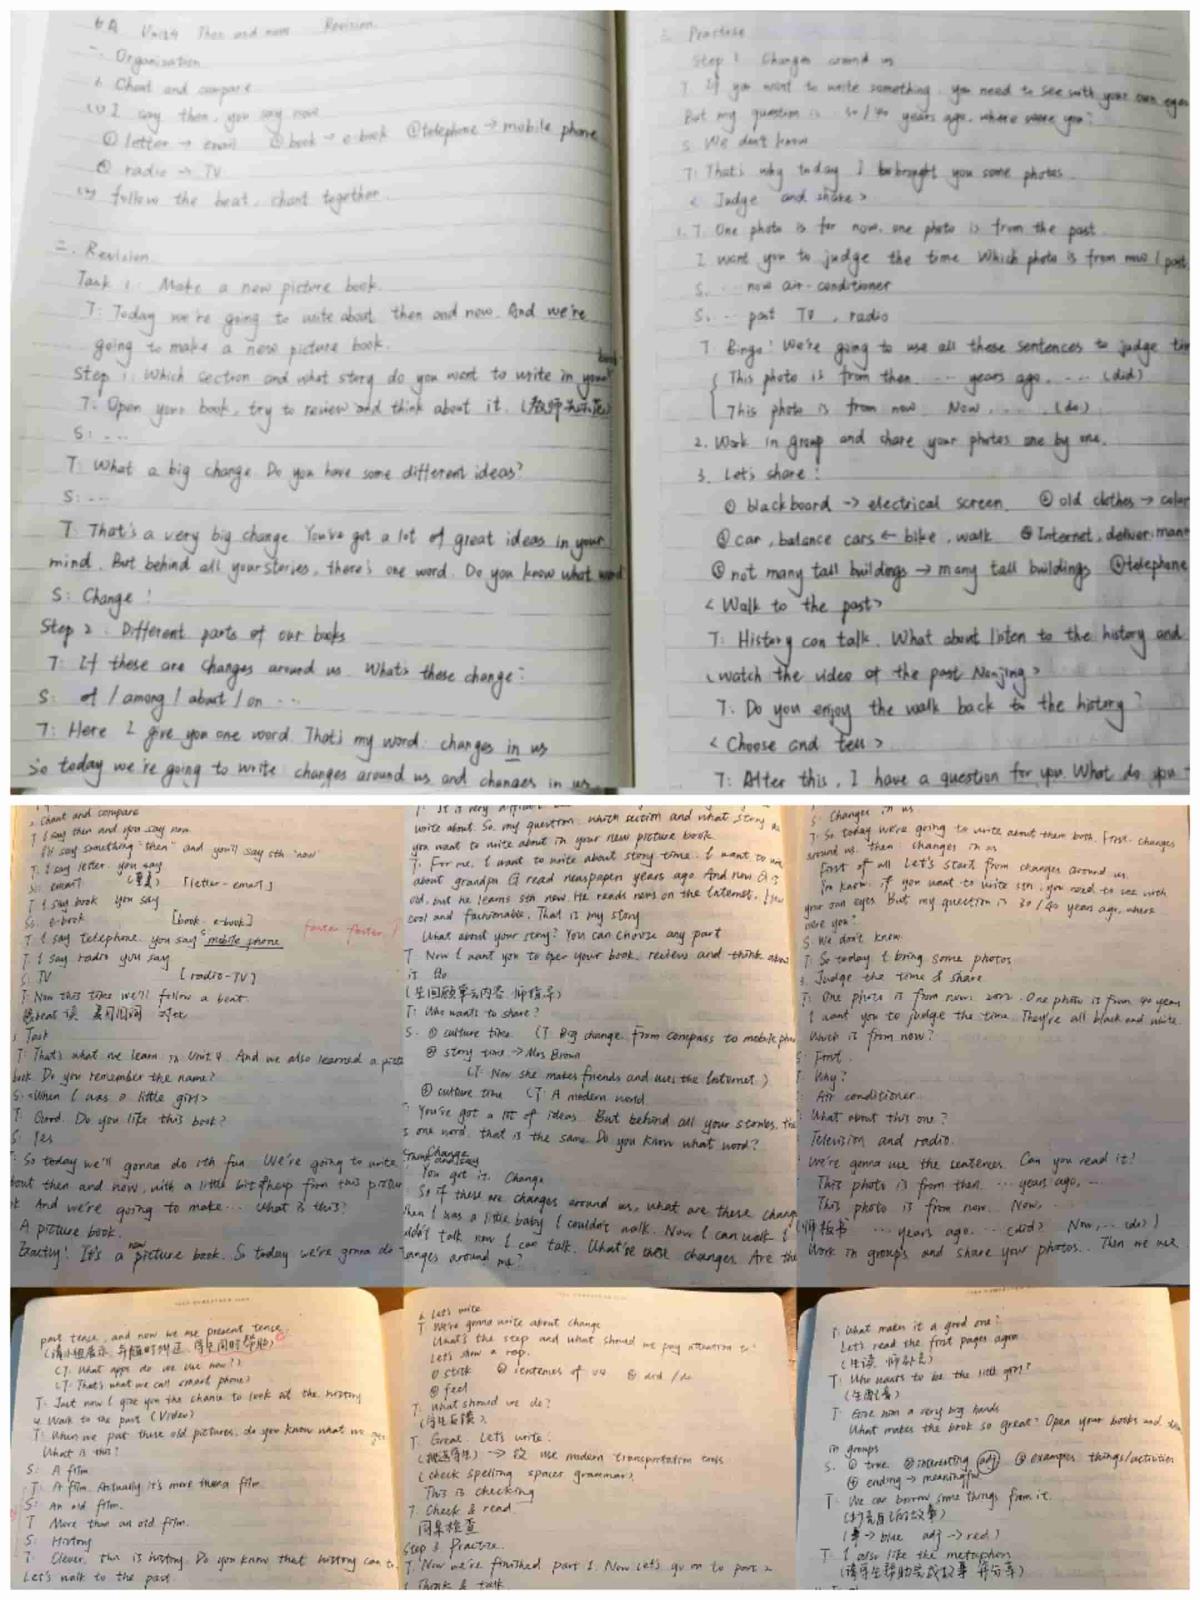 6A Unit4 Then and now Revision
一. Organisation
1. Chant and compare
(1) I say then, you say now
① letter → email ② book → e-book ③ telephone → mobile phone
④ radio → TV
(2) follow the beat, chant together.
二. Revision
Task 1: Make a new picture book.
T: Today we're going to write about then and now. And we're
going to make a new picture book.
Step 1: Which section and what story do you want to write in your book
T: Open your book, try to review and think about it. (教师先示范)
S: ...
T: What a big change. Do you have some different ideas?
S: ...
T: That's a very big change. You've got a lot of great ideas in your
mind. But behind all your stories, there's one word. Do you know what word
S: Change!
Step 2: Different parts of our books
T: If these are changes around us. What's these change:
S: of / among / about / on ...
T: Here I give you one word. That's my word: changes in us
So today we're going to write changes around us and changes in us.
三. Practise
Step 1 Changes around us
T: If you want to write something, you need to see with your own eyes
But my question is: 30/40 years ago, where were you?
S: We don't know
T: That's why today I brought you some photos.
< Judge and share >
1. T: One photo is for now, one photo is from the past.
I want you to judge the time. Which photo is from now / past
S: ... now air-conditioner
S: ... past TV, radio
T: Bingo! We're going to use all these sentences to judge tim
This photo is from then. ... years ago, ... (did)
This photo is from now. Now, ... (do)
2. Work in group and share your photos one by one.
3. Let's share!
① blackboard → electrical screen. ② old clothes → color
③ car, balance cars ← bike, walk ④ Internet, deliver man
⑤ not many tall buildings → many tall buildings ⑥ telephone
< Walk to the past >
T: History can talk. What about listen to the history and
(watch the video of the past Nanjing >
T: Do you enjoy the walk back to the history?
< Choose and tell >
T: After this, I have a question for you. What do you
2. Chant and compare
T: I say then and you say now.
I'll say something "then" and you'll say sth "now"
T: I say letter, you say
S: email [letter-email]
T: I say book you say
Ss: e-book [book-e-book]
T: I say telephone, you say "mobile phone faster faster!
T: I say radio you say
S: TV [radio-TV]
T: Now this time we'll follow a beat.
3. Task
T: That's what we learn in Unit 4. And we also learned a pict
book. Do you remember the name?
S: <When I was a little girl>
T: Good. Do you like this book?
S: Yes
T: So today we'll gonna do sth fun. We're going to write
out then and now, with a little bit help from this pictur
k. And we're going to make... What is this?
A picture book.
Exactly! It's a new picture book. So today we're gonna do
write about. So, my question: which section and what story
you want to write about in your new picture book.
T: For me, I want to write about story time. I want to w
about grandpa. G read newspaper years ago. And now G is
old, but he learns sth new. He reads news on the Internet. How
cool and fashionable. That is my story
What about your story? You can choose any part
T: Now I want you to open your book, review and think abou
it.
(生回顾单元内容 师指导)
T: Who wants to share?
S: ① culture time. (T: Big change. From compass to mobile pho
② story time → Mrs Brown
(T: Now she makes friends and uses the Internet.)
③ culture time (T: A modern world
T: You've got a lot of ideas. But behind all your stories, the
s one word, that is the same. Do you know what word?
S: Change
You got it. Change
So if these are changes around us, what are these chang
When I was a little baby I couldn't walk. Now I can walk. I
uldn't talk now I can talk. What're these changes. Are the
anges around me?
S: Changes in us.
T: So today we're going to write about them both. First, changes
around us, then changes in us
First of all Let's start from changes around us.
You know: if you want to write sth, you need to see with
your own eyes. But my question is 30/40 years ago, where
were you?
S: We don't know.
T: So today I bring some photos.
3. Judge the time & share
T: One photo is from now. One photo is from 40 years
I want you to judge the time. They're all black and white.
Which is from now?
S: First.
T: Why?
Air conditioner.
What about this one?
Television and radio.
We're gonna use the sentences. Can you read it?
This photo is from then. ... years ago, ...
This photo is from now. Now, ...
(师板书 ... years ago. ... (did) Now, ... (do))
Work in groups and share your photos.. Then we use
past tense, and now we use present tense.
(T: What apps do we use now?)
(T: That's what we call smart phone)
T: Just now I give you the chance to look at the history
4. Walk to the past (Video)
T: When we put these old pictures, do you know what we get
What is this?
S: A film
T: A film. Actually it's more than a film.
S: An old film.
T: More than an old film.
S: History
T: Clever, this is history. Do you know that history can t
Let's walk to the past.
6. Let's write
T: We're gonna write about change
What's the step and what should we pay attention to?
Let's show a rap.
① stick ② sentences of U4 ③ did / do
④ feel
T: What should we do?
(学生反馈)
T: Great. Let's write.
→ 改 use modern transportation tools
(check spelling spaces grammar)
This is checking
7. Check & read
同桌检查
Step 3. Practice.
T: Now we're finished part 1. Now let's go on to part 2
1. Think & talk
T: What makes it a good one?
Let's read the first pages again
(生读, 师补充)
T: Who wants to be the little girl?
T: Give him a very big hands
What makes the book so great? Open your books and
in groups
S: ① true ② interesting (adj) ③ examples things/activities
④ ending → meaningful
T: We can borrow some things from it.
(→ blue adj → red)
T: I also like the metaphor